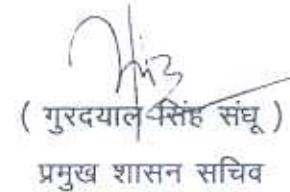 ( गुरदयाल सिंह संधू )
प्रमुख शासन सचिव